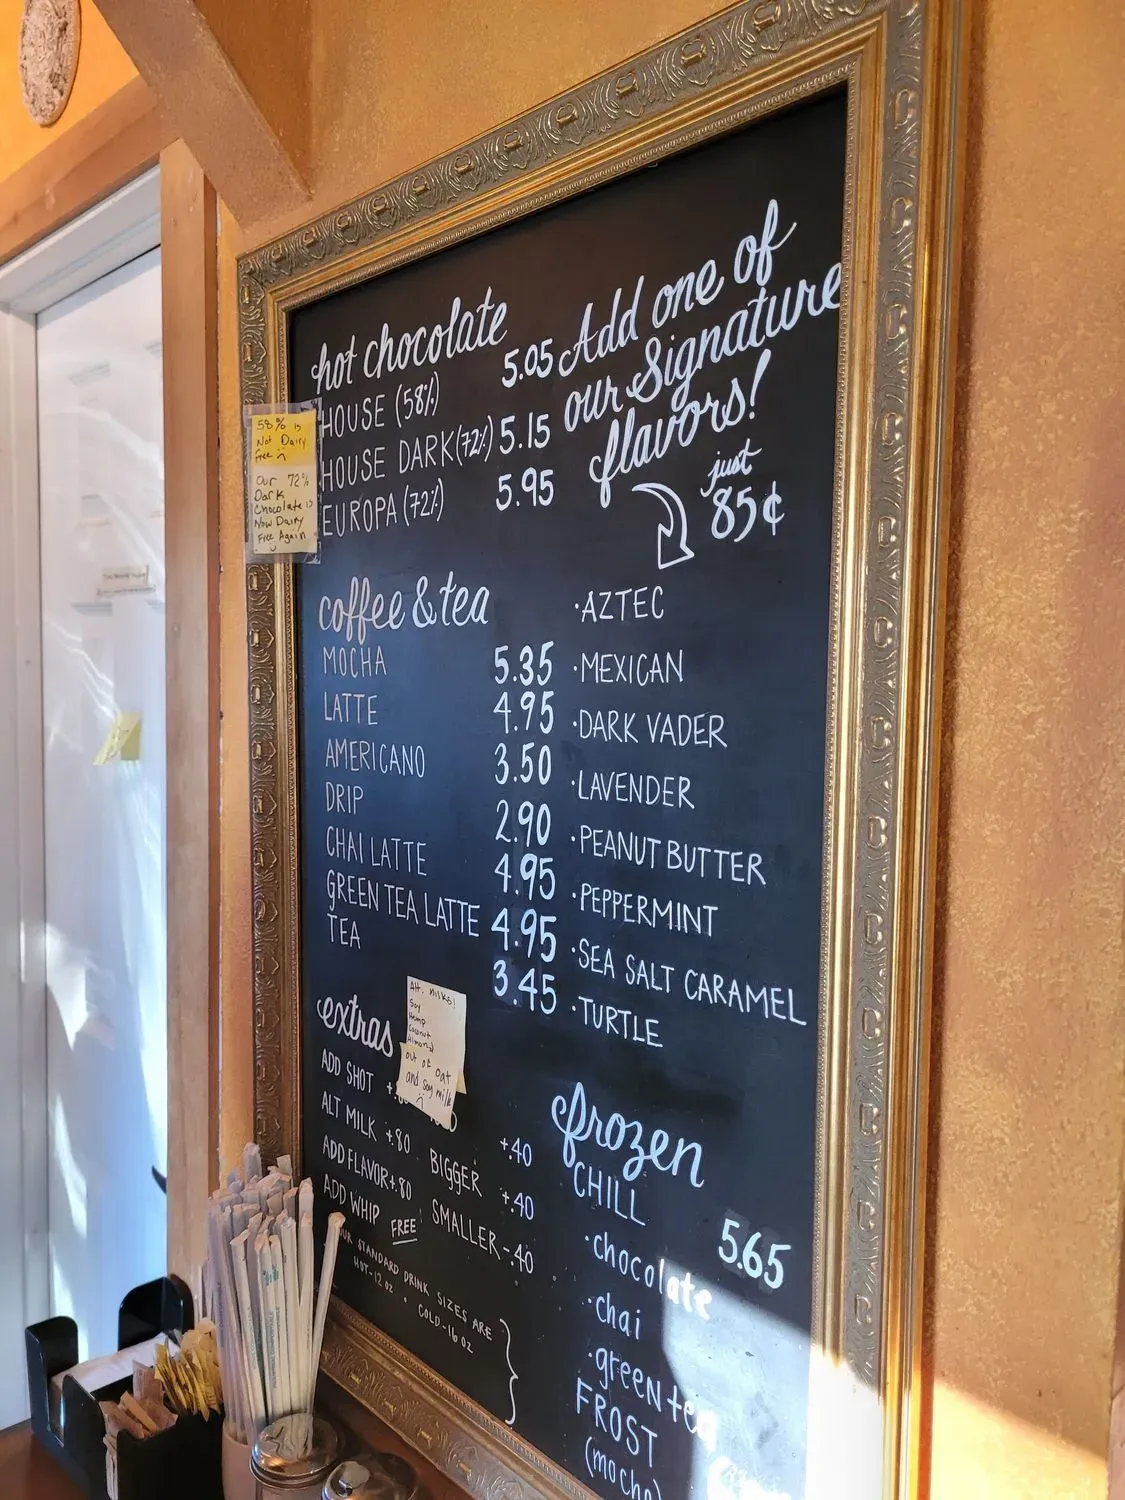 hot chocolate
HOUSE (58%) 5.05
HOUSE DARK (72%) 5.15
EUROPA (72%) 5.95
58% is
Not Dairy
free
Our 72%
Dark
Chocolate is
Now Dairy
Free Again
coffee & tea
MOCHA 5.35
LATTE 4.95
AMERICANO 3.50
DRIP 2.90
CHAI LATTE 4.95
GREEN TEA LATTE 4.95
TEA 3.45
extras
Alt. Milks!
Soy
Hemp
Coconut
Almond
out of Oat
and Soy milk
ADD SHOT
ALT MILK +.80
ADD FLAVOR +.80
ADD WHIP FREE
+.40
BIGGER +.40
SMALLER -.40
OUR STANDARD DRINK SIZES ARE
HOT-12 OZ • COLD-16 OZ
Add one of
our Signature
flavors!
just
85¢
·AZTEC
·MEXICAN
·DARK VADER
·LAVENDER
·PEANUT BUTTER
·PEPPERMINT
·SEA SALT CARAMEL
·TURTLE
frozen
CHILL 5.65
·chocolate
·chai
·green tea
FROST
(mocha)